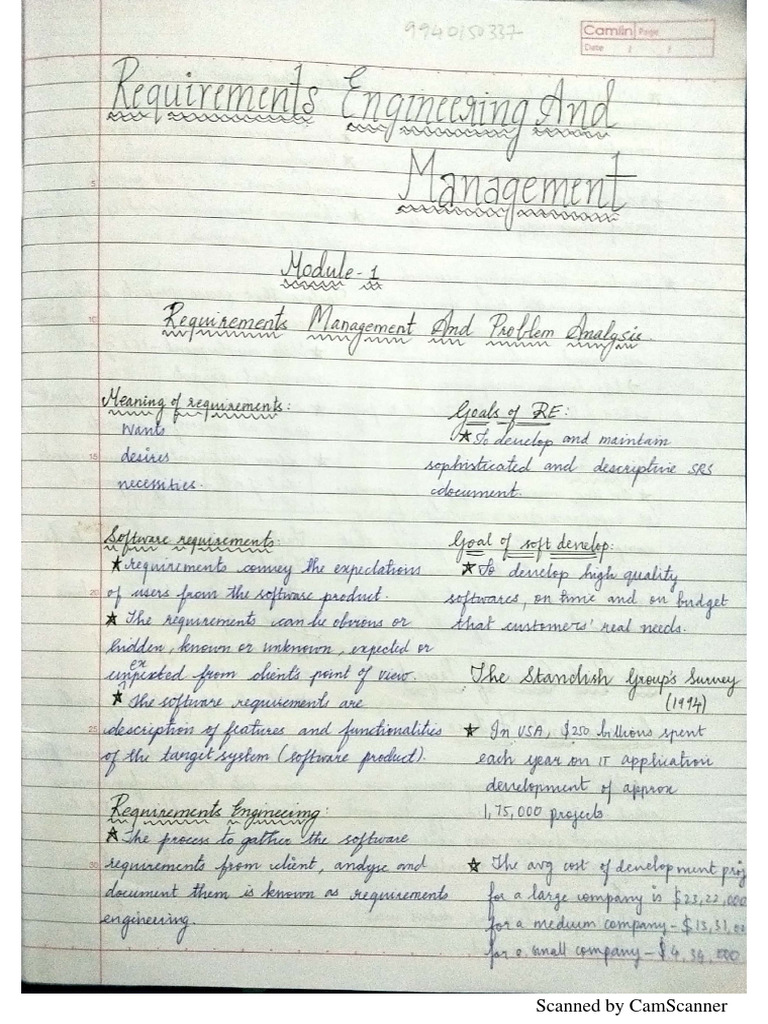 9940150337
Camlin Page
Date / /
Requirements Engineering And
Management
Module-1
Requirements Management And Problem Analysis.
Meaning of requirements:
Wants
desires
necessities.
Software requirements:
★ requirements convey the expectations
of users from the software product.
★ The requirements can be obvious or
hidden, known or unknown, expected or
unpexted from client's point of view.
ex
★ The software requirements are
description of features and functionalities
of the target system (software product).
Requirements Engineering:
★ The process to gather the software
requirements from client, analyse and
document them is known as requirements
engineering.
Goals of RE:
★ To develop and maintain
sophisticated and descriptive SRS
document.
Goal of soft develop:
★ To develop high quality
softwares, on time and on budget
that customers' real needs.
The Standish Group's Survey
(1994)
★ In USA, $250 billions spent
each year on IT application
development of approx
1,75,000 projects
★ The avg cost of development proj
for a large company is $23,22,000
for a medium company - $13,31,00
for a small company - $4,34,000
5
10
15
20
25
30
Scanned by CamScanner